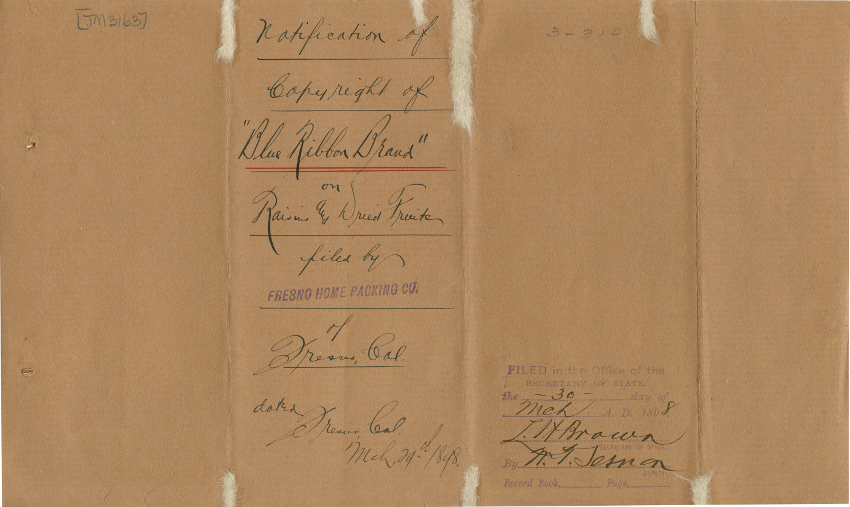 [TM3163]
Notification of
Copyright of
"Blue Ribbon Brand"
on
Raisins & Dried Fruits
filed by
FRESNO HOME PACKING CO.
of
Fresno, Cal.
dated
Fresno, Cal.
Mch, 29th/1898.
3-310
FILED in the Office of the
SECRETARY OF STATE
the -30- day of
Mch A. D. 1898
L. H. Brown
SECRETARY OF STATE
By
Record Book, Page,